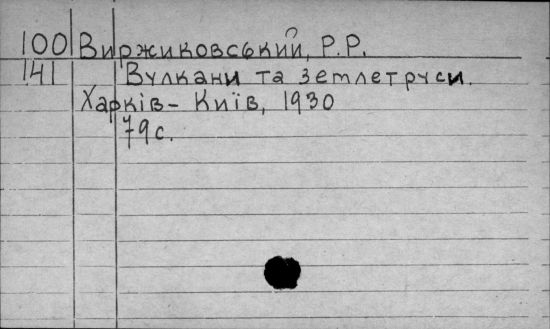 100 Виржиковський, Р.Р.
141 Вулкани та землетруси.
Харків - Київ, 1930
79 с.